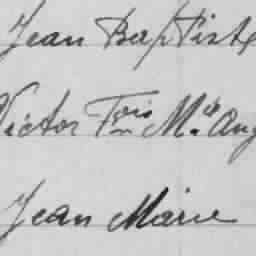 Jean Baptiste
Victor Fois M.ie Aug
Jean Marie